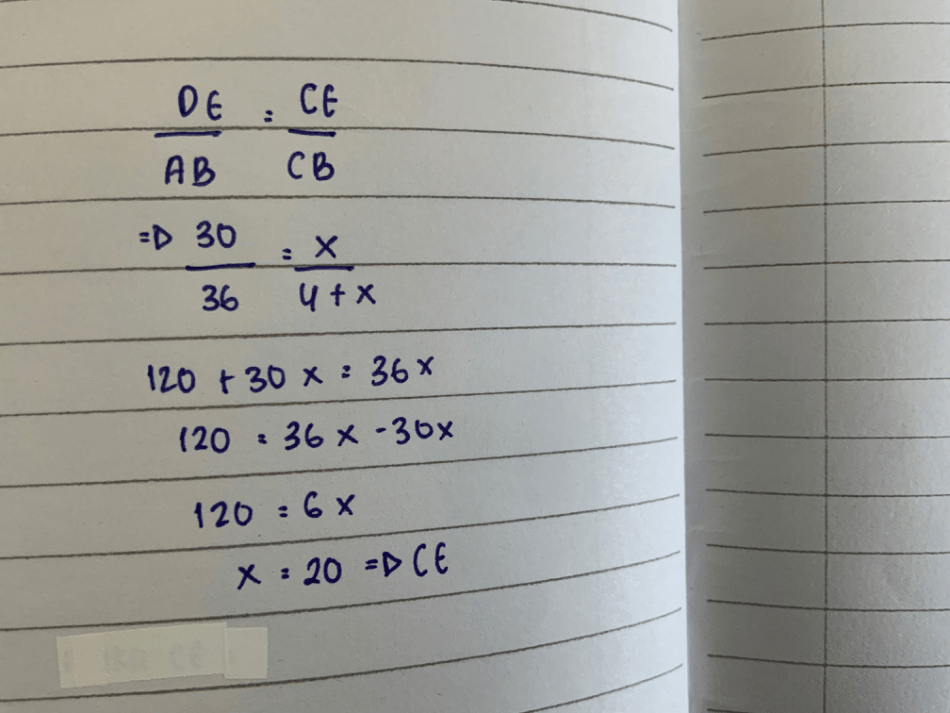 DE = CE
AB CB
=D 30 = x
36 4 + x
120 + 30 x = 36 x
120 = 36 x - 30x
120 = 6 x
x = 20 =D CE